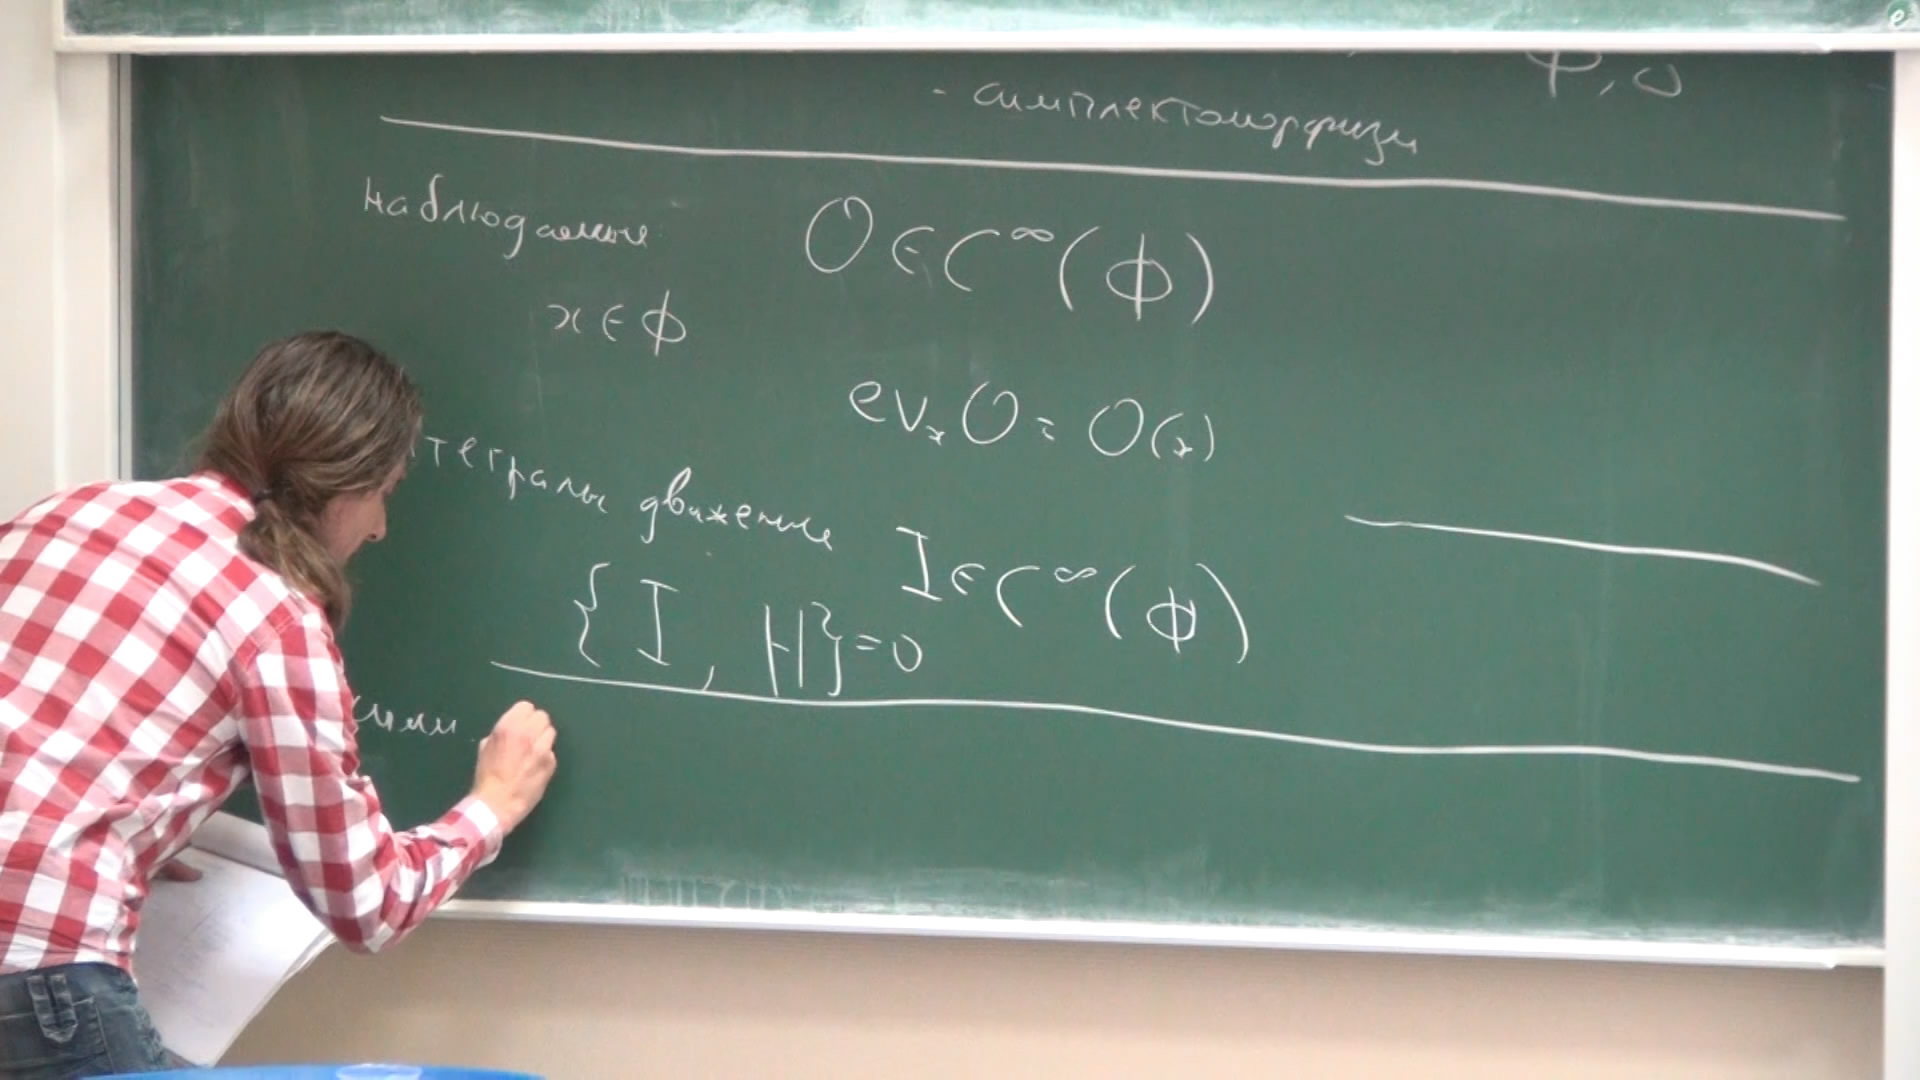 - симплектоморфизм
наблюдаемые O ∈ C^∞(ϕ)
x ∈ ϕ
ev_x O = O(x)
тегралы движения I ∈ C^∞(ϕ)
{I, H} = 0
симм